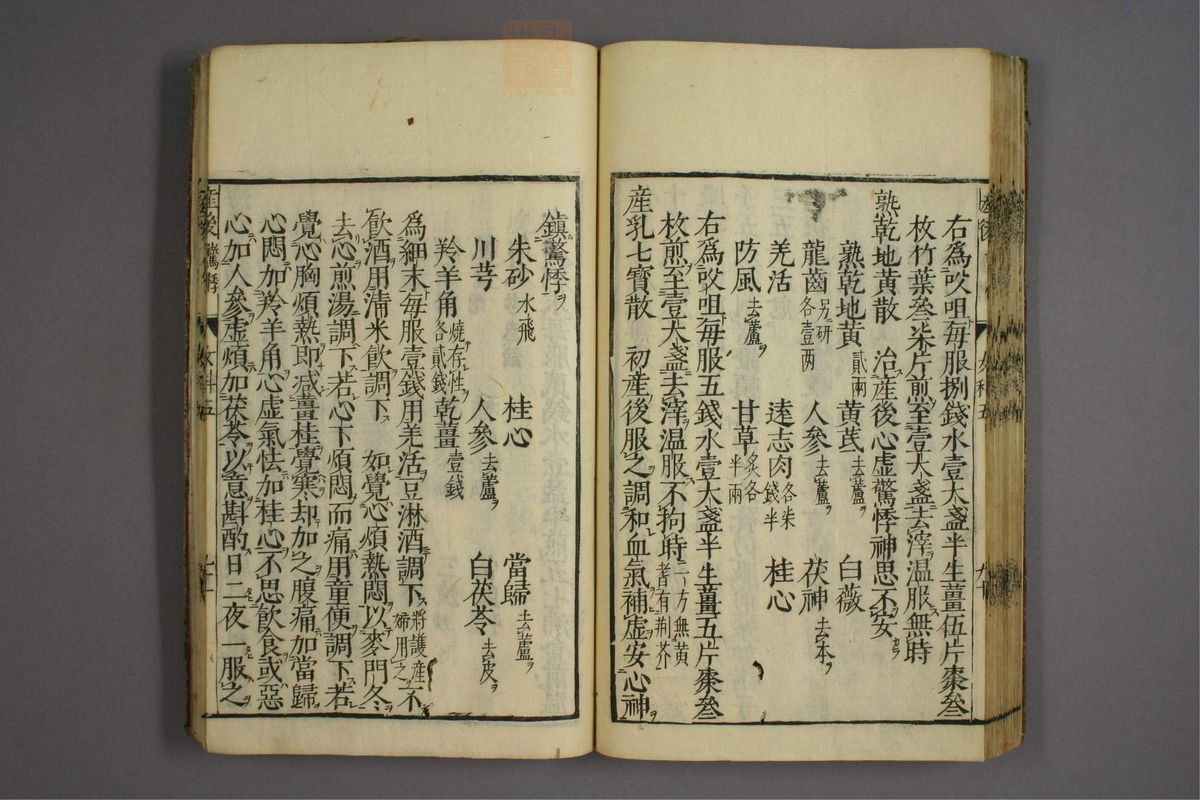 右爲㕮咀每服捌錢水壹大盞半生薑伍片棗叄
枚竹葉叄柒片煎至壹大盞去滓溫服無時
熟乾地黃散　治産後心虛驚悸神思不安
熟乾地黃貳兩　黃芪去蘆　白薇
龍齒另研各壹兩　人參去蘆　茯神去木
羌活　遠志肉各柒錢半　桂心
防風去蘆　甘草炙各半兩
右爲㕮咀每服五錢水壹大盞半生薑五片棗叄
枚煎至壹大盞去滓溫服不拘時一方無黃芪有荆芥
産乳七寳散　初産後服之調和血氣補虛安心神
鎮驚悸
朱砂水飛　桂心　當歸去蘆
川芎　人參去蘆　白茯苓去皮
羚羊角燒存性各貳錢　乾薑壹錢
爲細末每服壹錢用羌活豆淋酒調下將護産婦用之不
飮酒用淸米飮調下　如覺心煩熱悶以麥門冬
去心煎湯調下若心下煩悶而痛用童便調下若
覺心胸煩熱即減薑桂覺寒却加之腹痛加當歸
心悶加羚羊角心虛氣怯加桂心不思飮食或惡
心加人參虛煩加茯苓以意斟酌日二夜一服之
産後　驚悸　女科五